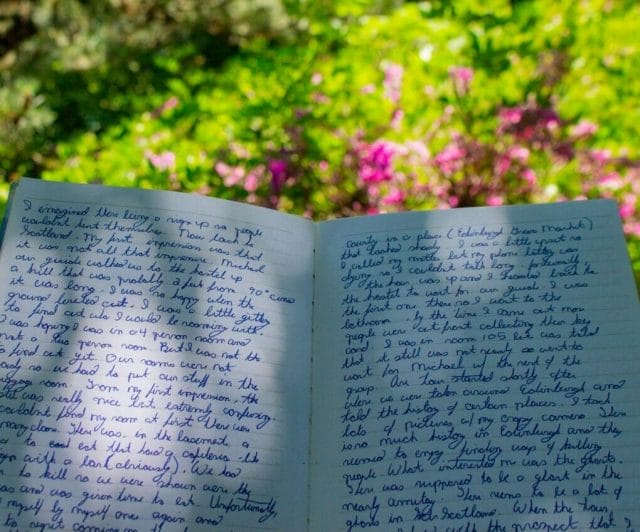 I imagined there being a sign up so people
couldn't hurt themselves. Now back to
Scotland! My first impression was that
it was not all that impressive. Michael
our guide walked us to the hostel up
a hill that was probably a few from 90° and
it was long. I was so happy when the
ground leveled out. I was a little giddy
to find out who I would be rooming with.
I was hoping I was in a 4 person room and
not a person room. But I was not the
to find out yet. Our rooms were not
ready so we had to put our stuff in the
luggage room. From my first impression, the
hostel was really nice but extremely confusing.
couldn't find my room at first there were
many doors. There was, in the basement, a
to eat that had a cafeteria
with a bar (obviously). We had
to kill so we were shown were the
was and was given time to eat. Unfortunately,
myself by myself once again and
county in a place (Edinburgh Grass Market)
that looked shady. I was a little upset so
I called my mother but my phone battery was
dying so I couldn't talk long. Eventually
the hour was up and I headed back to
the hostel to wait for our guide. I was
the first one there so I went to the
bathroom. by the time I came out more
people were out front collecting their key
card. I was in room 105 but was told
that it still was not ready so went to
wait for Michael w/ the rest of the
group. Our tour started shortly after
were we were taken around Edinburgh and
told the history of certain places. I took
lots of pictures w/ my camera. There
is so much history in Edinburgh and they
seemed to enjoy finding ways of killing
people. What interested me was the ghosts.
There was supposed to be a ghost in the
nearby cemetary. There seems to be a lot of
ghosts in Scotland. When the tour
with the prospect that I